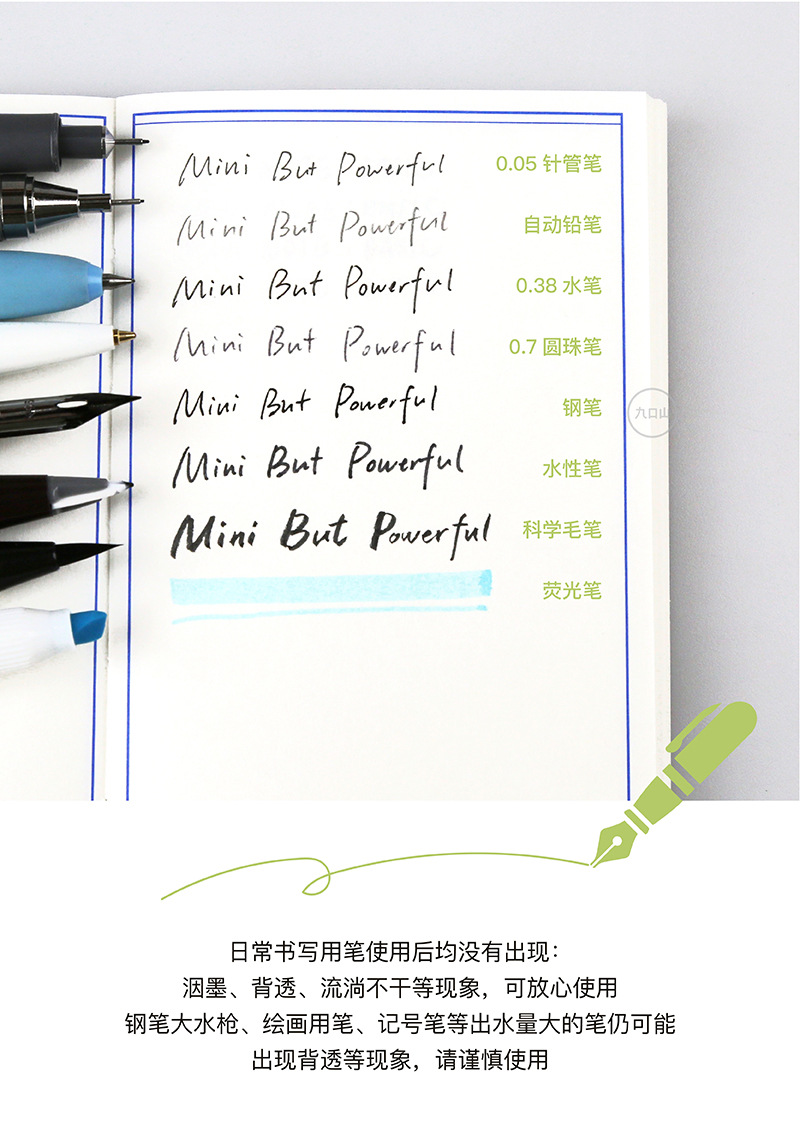 Mini But Powerful 0.05 针管笔
Mini But Powerful 自动铅笔
Mini But Powerful 0.38 水笔
Mini But Powerful 0.7 圆珠笔
Mini But Powerful 钢笔
九口山
Mini But Powerful 水性笔
Mini But Powerful 科学毛笔
荧光笔
日常书写用笔使用后均没有出现：
洇墨、背透、流淌不干等现象，可放心使用
钢笔大水枪、绘画用笔、记号笔等出水量大的笔仍可能
出现背透等现象，请谨慎使用